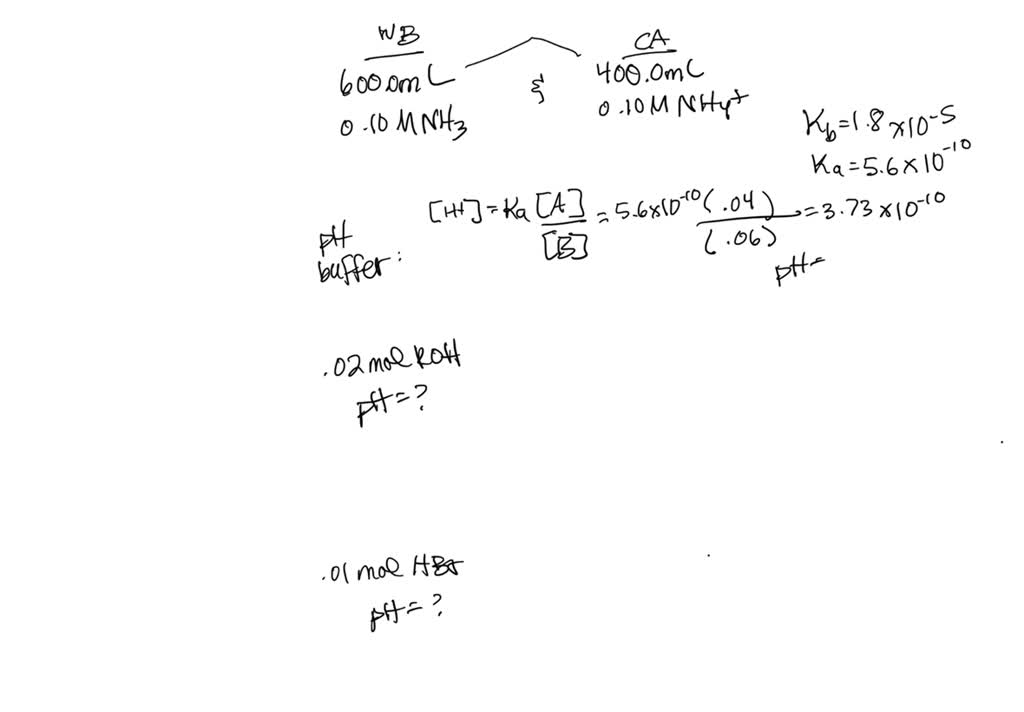 WB
600.0mL
0.10 M NH3
&
CA
400.0mL
0.10 M NH4+
Kb=1.8x10-5
Ka=5.6x10-10
pH
buffer:
[H+]=Ka [A]/[B] = 5.6x10-10 (.04)/(.06) = 3.73x10-10
pH=
.02 mol KOH
pH=?
.01 mol HBr
pH=?